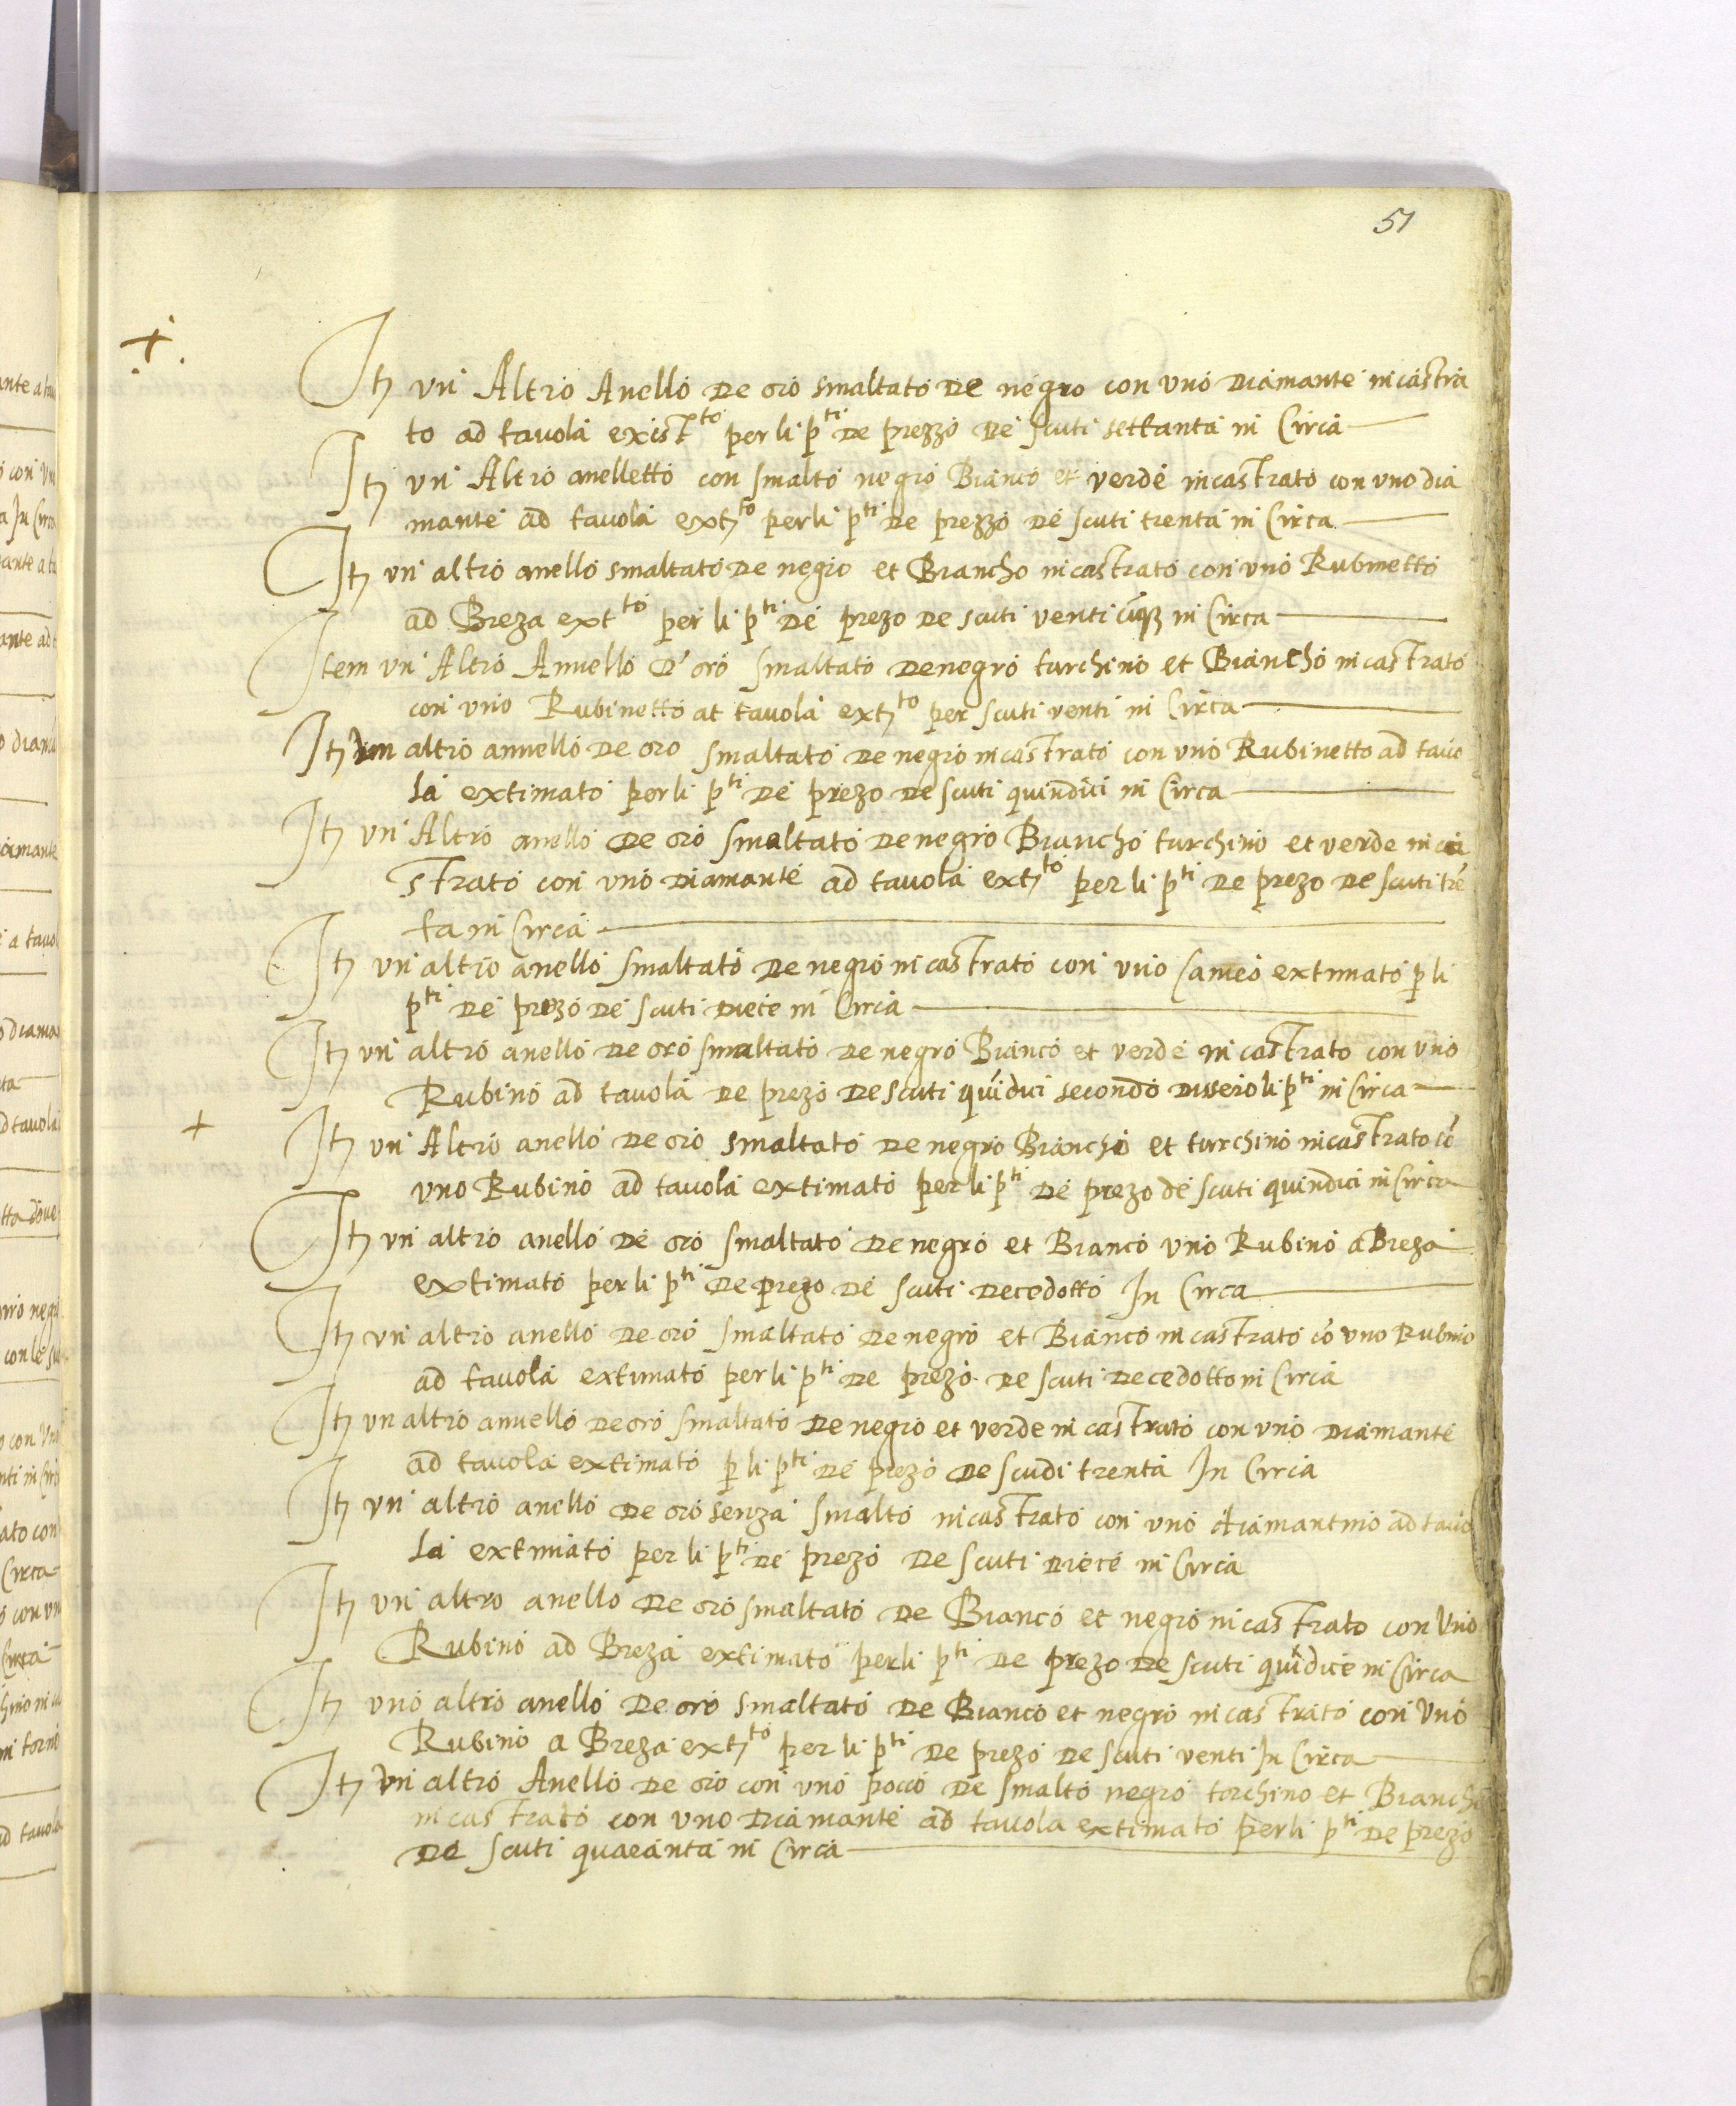 51
+
Itȝ un Altro Anello de oro smaltato de negro con uno diamante incastra
to ad tavola exist.to per li p.ti de prezzo de scuti settanta in Circa
Itȝ un Altro anelletto con smalto negro Bianco et verde incastrato con uno dia
mante ad tavola extȝ.to per li p.ti de prezzo de scuti trenta in Circa
Itȝ un altro anello smaltato de negro et Biancho incastrato con uno Rubinetto
ad Breza ext.to per li p.ti de prezo de scuti venti cīqȝ in Circa
Item un Altro Annello d'oro smaltato de negro turchino et Biancho incastrato
con uno Rubinetto at tavola extȝ.to per scuti venti in Circa
Itȝ un altro annello de oro smaltato de negro incastrato con uno Rubinetto ad tavo
la extimato per li p.ti de prezo de scuti quindici in Circa
Itȝ un Altro anello de oro smaltato de negro Biancho turchino et verde inca
strato con uno diamante ad tavola extȝ.to per li p.ti de prezo de scuti trē
ta in Circa
Itȝ un altro anello smaltato de negro incastrato con uno Cameo extimato p li
p.ti de prezo de scuti diece in Circa
Itȝ un altro anello de oro smaltato de negro Bianco et verde incastrato con uno
Rubino ad tavola de prezo de scuti quīdici secondo dissero li p.ti in Circa
+
Itȝ un Altro anello de oro smaltato de negro Biancho et turchino incastrato cō
uno Rubino ad tavola extimato per li p.ti de prezo de scuti quindici in Circa
Itȝ un altro anello de oro smaltato de negro et Bianco uno Rubino a Breza
extimato per li p.ti de prezo de scuti decedotto In Circa
Itȝ un altro anello de oro smaltato de negro et Bianco incastrato cō uno Rubino
ad tavola extimato per li p.ti de prezo de scuti decedotto in Circa
Itȝ un altro annello de oro smaltato de negro et verde incastrato con uno diamante
ad tavola extimato p li p.ti de prezo de scudi trenta In Circa
Itȝ un altro anello de oro senza smalto incastrato con uno diamantino ad tavo
la extimato per li p.ti de prezo de scuti diece in Circa
Itȝ un altro anello de oro smaltato de Bianco et negro incastrato con Uno
Rubino ad Breza extimato per li p.ti de prezo de scuti quīdice in Circa
Itȝ uno altro anello de oro smaltato de Bianco et negro incastrato con Uno
Rubino a Breza extȝ.to per li p.ti de prezo de scuti venti In Circa
Itȝ un altro Anello de oro con uno poco de smalto negro torchino et Biancho
incastrato con uno Diamante ad tavola extimato per li p.ti de prezo
de scuti quaranta in Circa